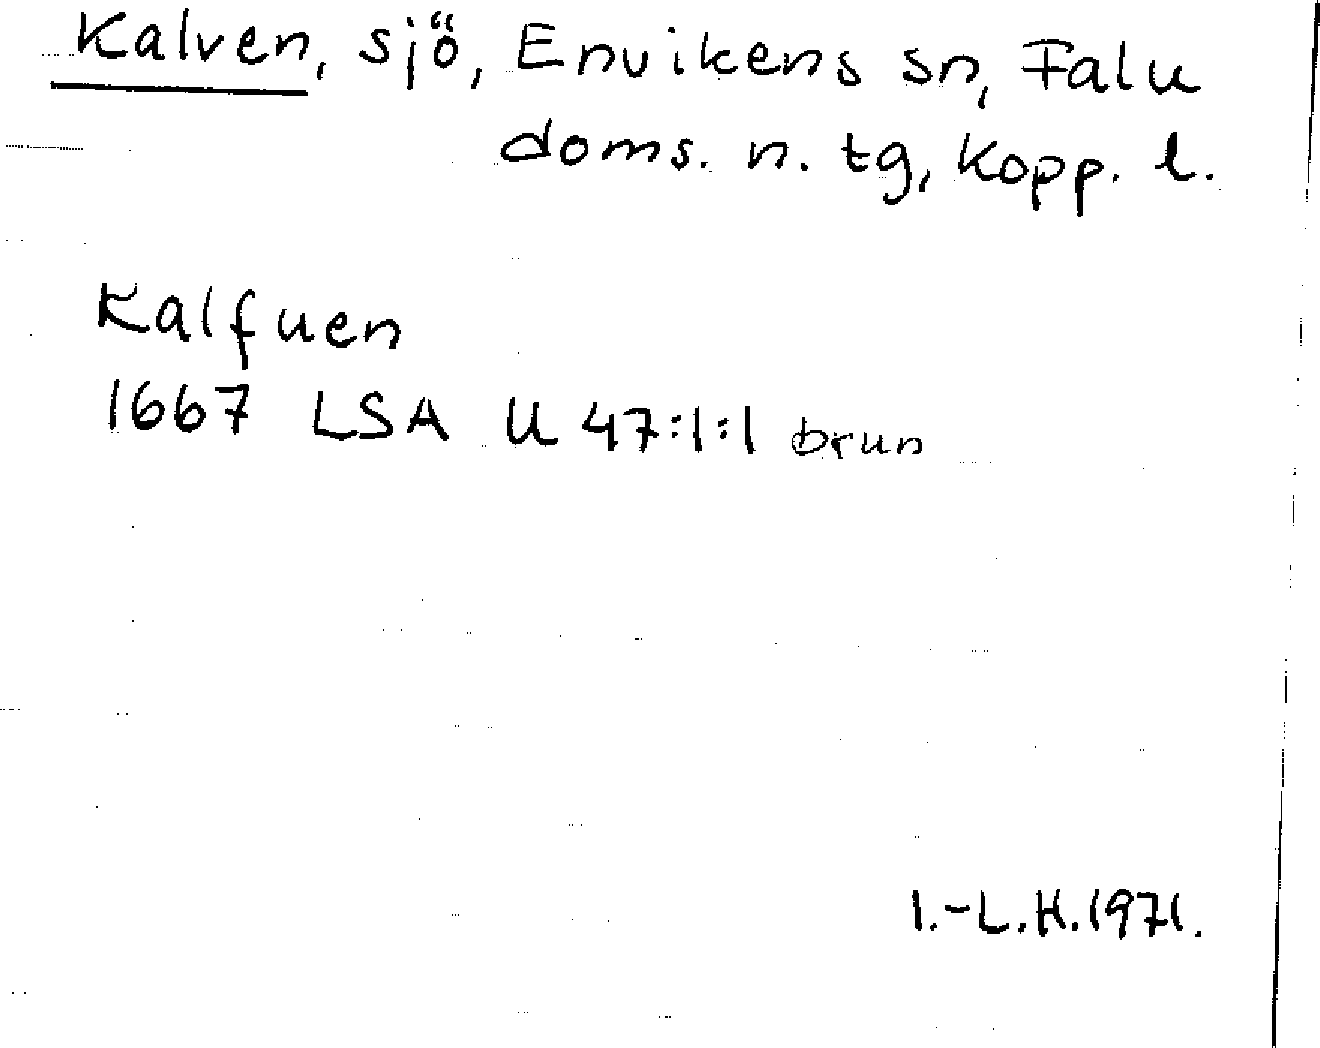 Kalven, sjö, Envikens sn, Falu
doms. n. tg, Kopp. l.
Kalfuen
1667 LSA U 47:1:1 brun
I.-L.H.1971.